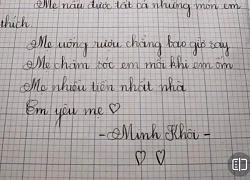 Mẹ nấu được tất cả những món em
thích.
Mẹ uống rượu chẳng bao giờ say
Mẹ chăm sóc em mỗi khi em ốm
Mẹ nhiều tiền nhất nhà
Em yêu mẹ ♡
- Minh Khôi -
♡ ♡